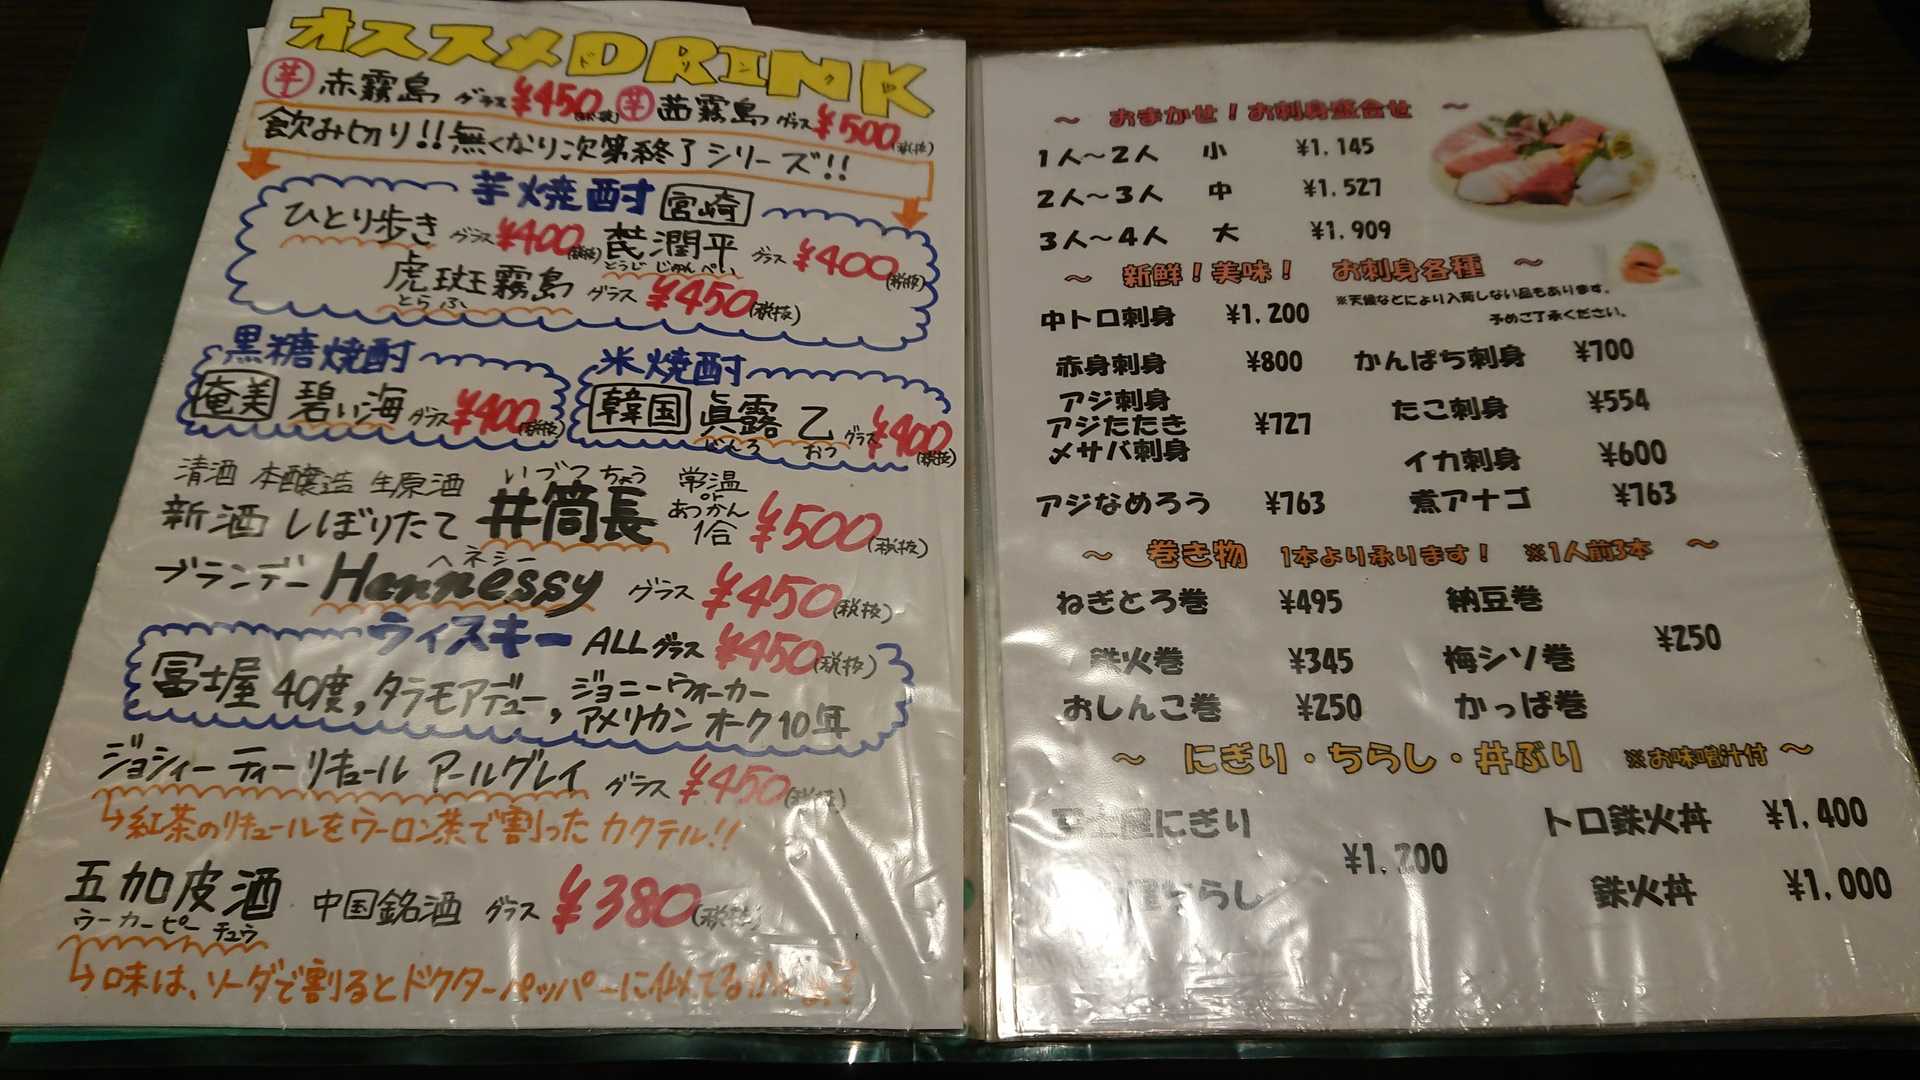 オススメDRINK
ドリンク
芋 赤霧島 グラス ¥450(税抜) 芋 茜霧島 グラス ¥500(税抜)
飲み切り!!無くなり次第終了シリーズ!!
芋焼酎 宮崎
ひとり歩き グラス ¥400(税抜) 潤平 グラス ¥400(税抜)
とうじ じゅんぺい
虎斑霧島 グラス ¥450(税抜)
とら ふ
黒糖焼酎
奄美 碧い海 グラス ¥400(税抜)
米焼酎
韓国 眞露 乙 グラス ¥400(税抜)
じんろ おつ
清酒 本醸造 生原酒
新酒しぼりたて 井筒長 常温 or あつかん 1合 ¥500(税抜)
いづつ ちょう
ブランデー Hennessy グラス ¥450(税抜)
ヘネシー
ウィスキー ALL グラス ¥450(税抜)
冨士屋 40度,タラモアデュー,ジョニーウォーカー
アメリカン オーク10年
ジョシィー ティーリキュール アールグレイ グラス ¥450(税抜)
→紅茶のリキュールをウーロン茶で割ったカクテル!!
五加皮酒 中国銘酒 グラス ¥380(税抜)
ウーカーピー チュウ
→味は、ソーダで割るとドクターペッパーに似てる
～ おまかせ！お刺身盛合せ ～
1人～2人 小 ¥1,145
2人～3人 中 ¥1,527
3人～4人 大 ¥1,909
～ 新鮮！美味！ お刺身各種 ～
※天候などにより入荷しない品もあります。
予めご了承ください。
中トロ刺身 ¥1,200
赤身刺身 ¥800 かんぱち刺身 ¥700
アジ刺身
アジたたき ¥727 たこ刺身 ¥554
〆サバ刺身 イカ刺身 ¥600
アジなめろう ¥763 煮アナゴ ¥763
～ 巻き物 1本より承ります！ ※1人前3本 ～
ねぎとろ巻 ¥495 納豆巻
鉄火巻 ¥345 梅シソ巻 ¥250
おしんこ巻 ¥250 かっぱ巻
～ にぎり・ちらし・丼ぶり ※お味噌汁付 ～
にぎり トロ鉄火丼 ¥1,400
¥1,200
ちらし 鉄火丼 ¥1,000